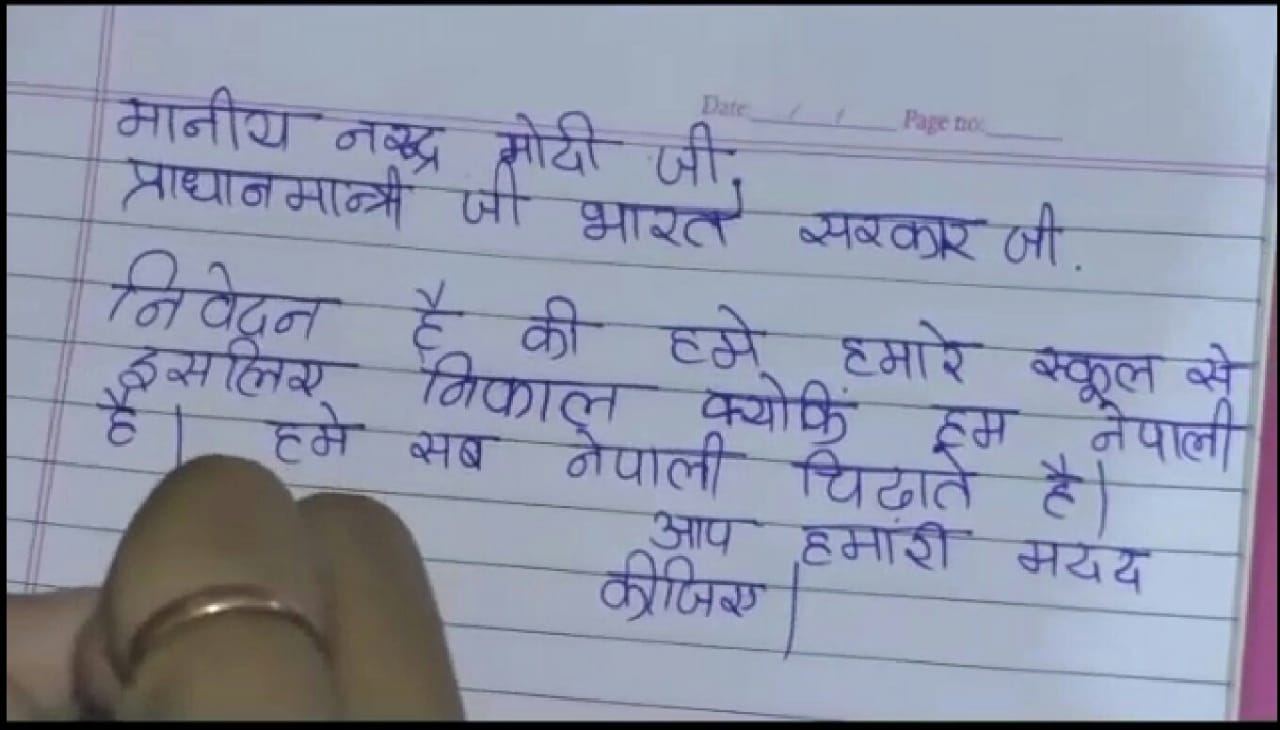 Date __/ / ___ Page no: ____
मानीय नरेन्द्र मोदी जी,
प्राधानमान्त्री जी भारत सरकार जी.
निवेदन है की हमे हमारे स्कूल से
इसलिए निकाल क्योकिं हम नेपाली
है। हमे सब नेपाली चिढाते है।
आप हमारी मदद
कीजिए।